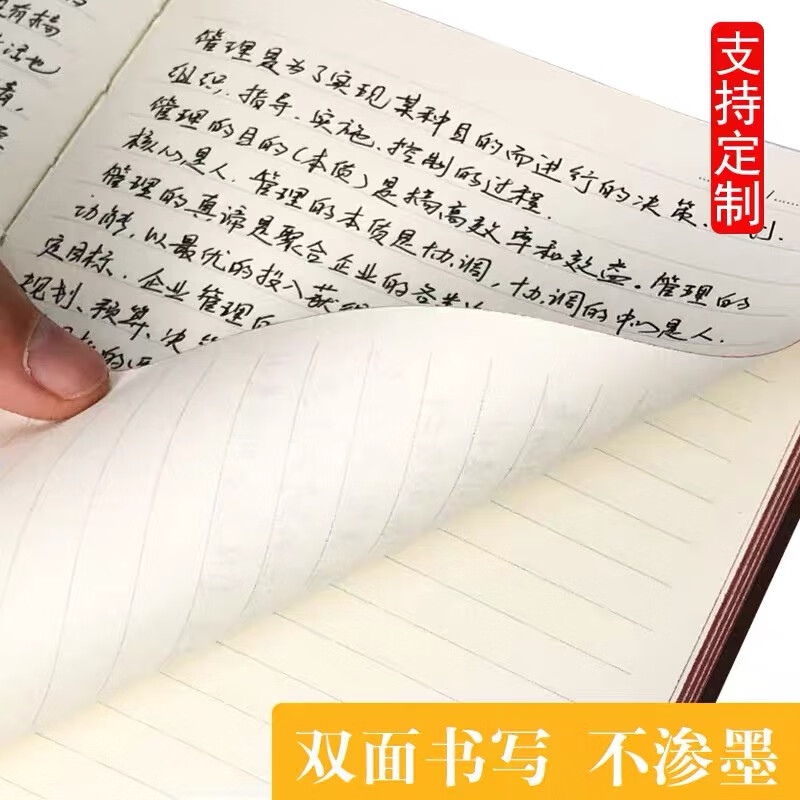 没有搞
管理是为了实现某种目的而进行的决策、计划、
组织、指导、实施、控制的过程.
管理的目的(本质)是搞高效率和效益。管理的
核心是人.管理的本质是协调，协调的中心是人.
管理的真谛是聚合企业的各类
功能,以最优的投入获
定目标.企业管理
规划、预算、决
支持定制
双面书写 不渗墨